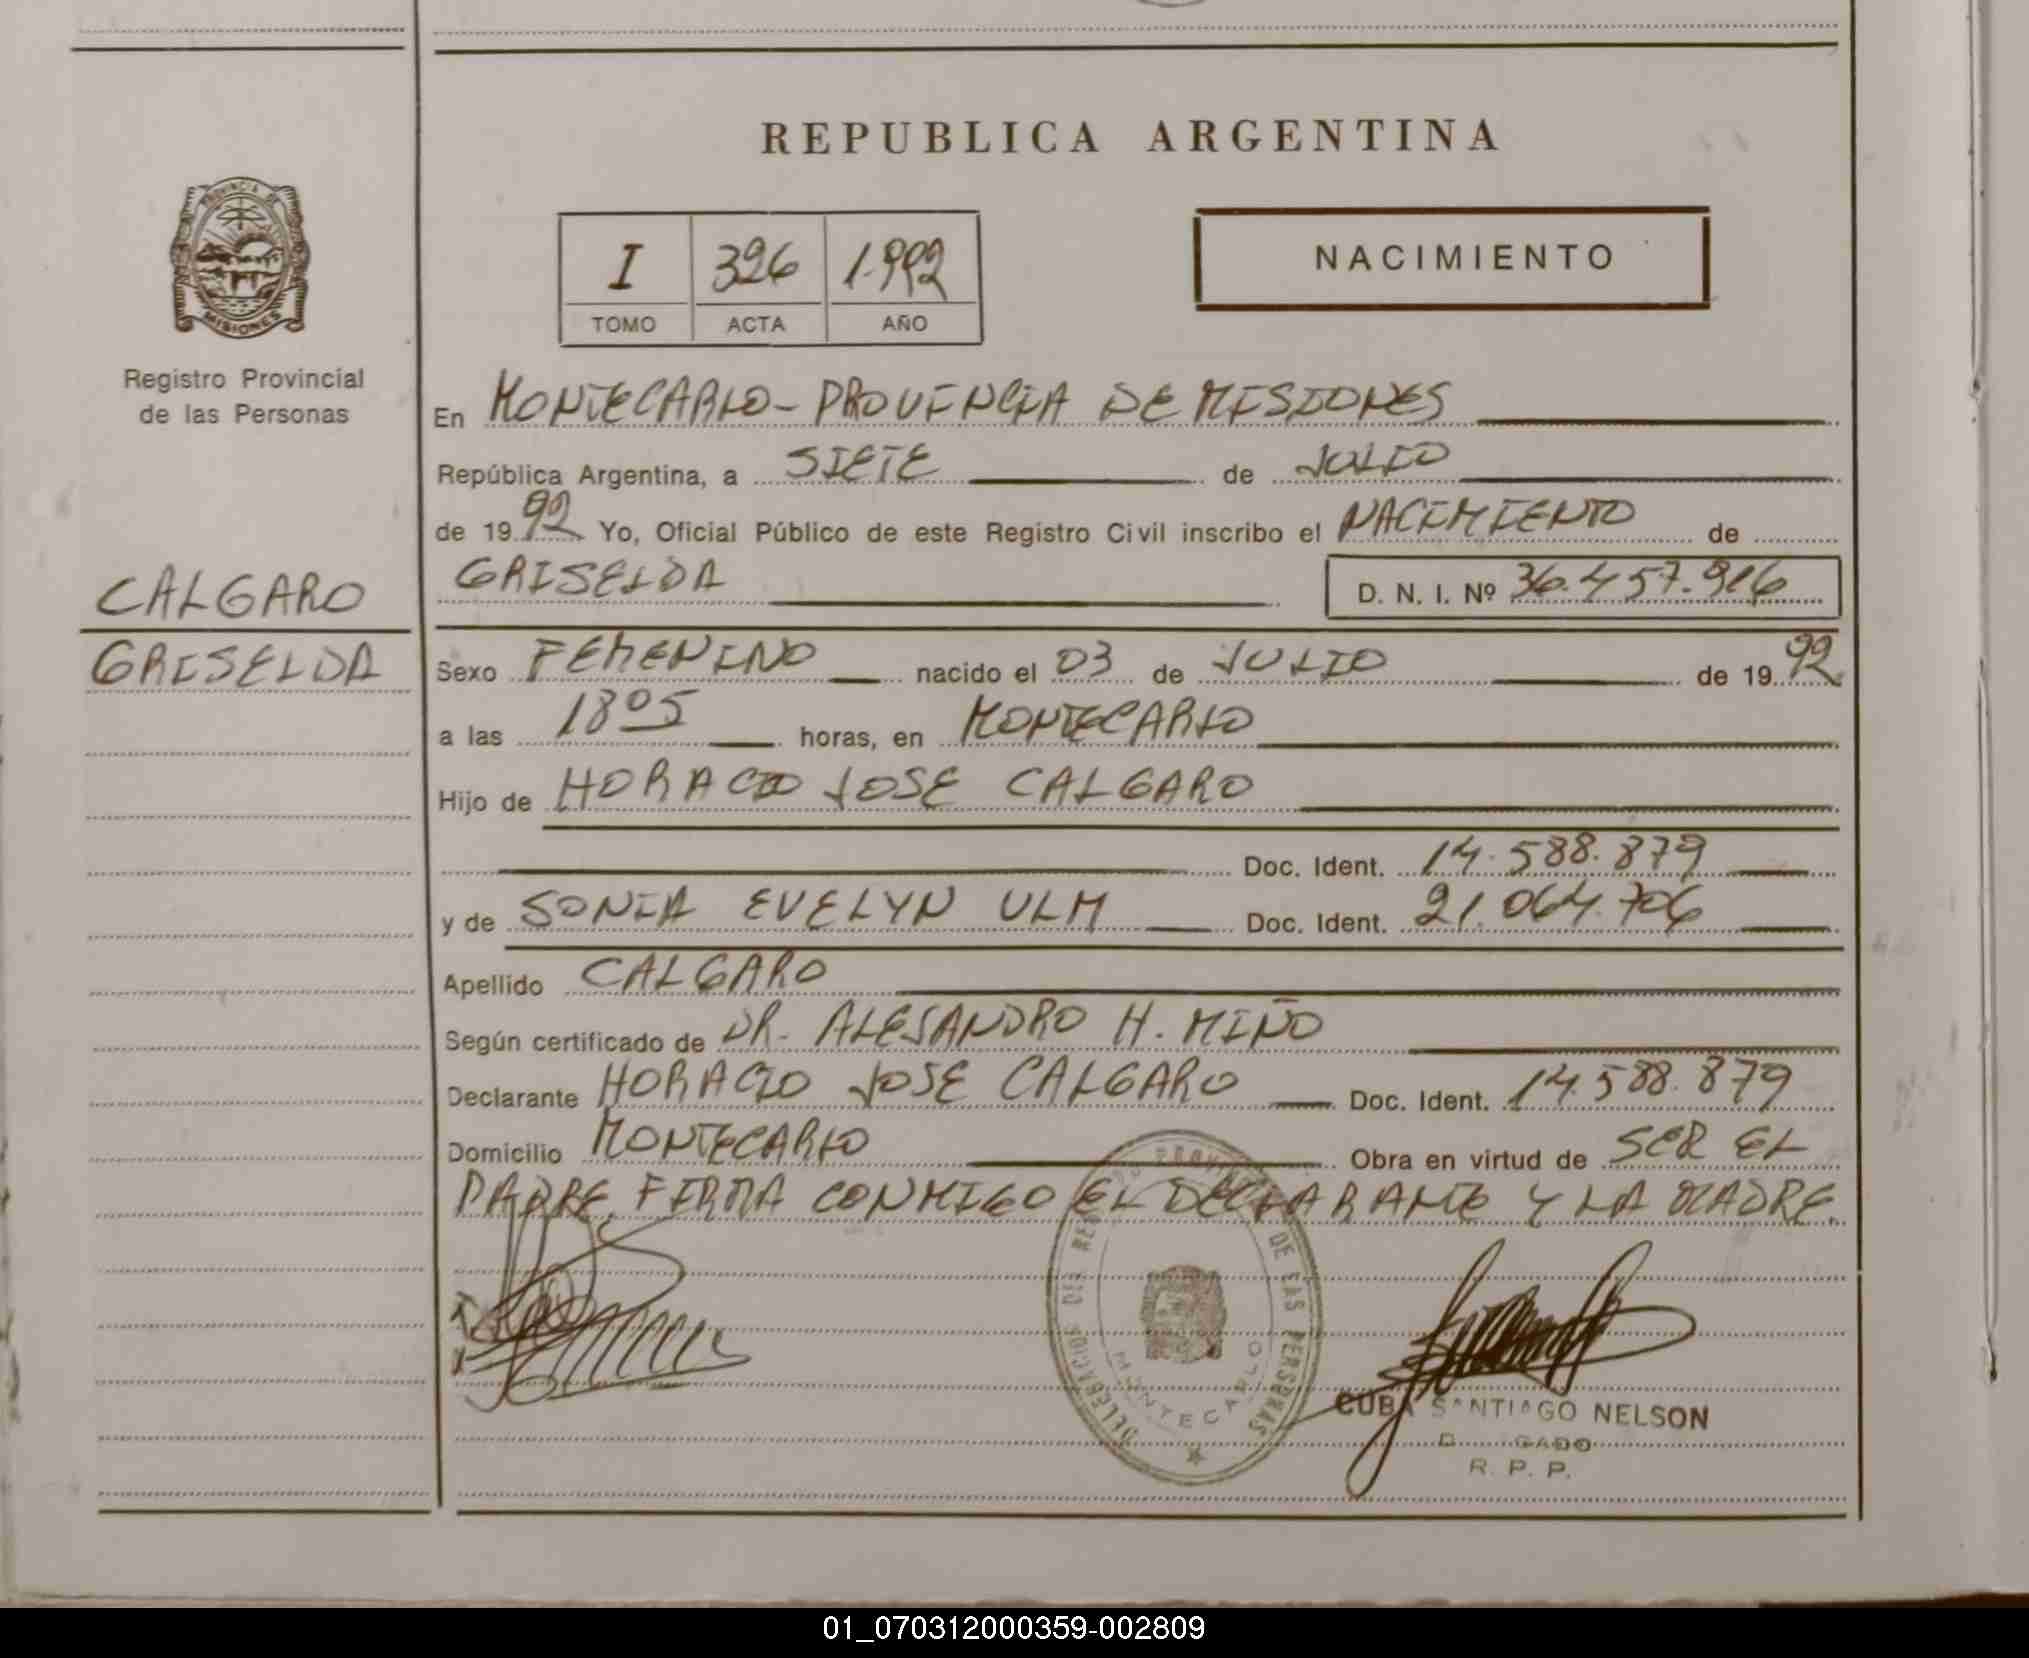 REPUBLICA ARGENTINA
PROVINCIA DE
MISIONES
Registro Provincial
de las Personas
I 326 1.992
TOMO ACTA AÑO
NACIMIENTO
En MONTECARLO - PROVINCIA DE MISIONES
República Argentina, a SIETE de JULIO
de 1992 Yo, Oficial Público de este Registro Civil inscribo el NACIMIENTO de
GRISELDA D. N. I. Nº 36.457.916
CALGARO
GRISELDA
Sexo FEMENINO nacido el 03 de JULIO de 1992
a las 18 05 horas, en MONTECARLO
Hijo de HORACIO JOSE CALGARO
Doc. Ident. 14.588.879
y de SONIA EVELYN ULM Doc. Ident. 21.064.706
Apellido CALGARO
Según certificado de DR. ALEJANDRO H. MIÑO
Declarante HORACIO JOSE CALGARO Doc. Ident. 14.588.879
Domicilio MONTECARLO Obra en virtud de SER EL
PADRE. FIRMA CONMIGO EL DECLARANTE Y LA MADRE.
DE LAS PERSONAS
MONTECARLO
CUBA SANTIAGO NELSON
R. P. P.
01_070312000359-002809